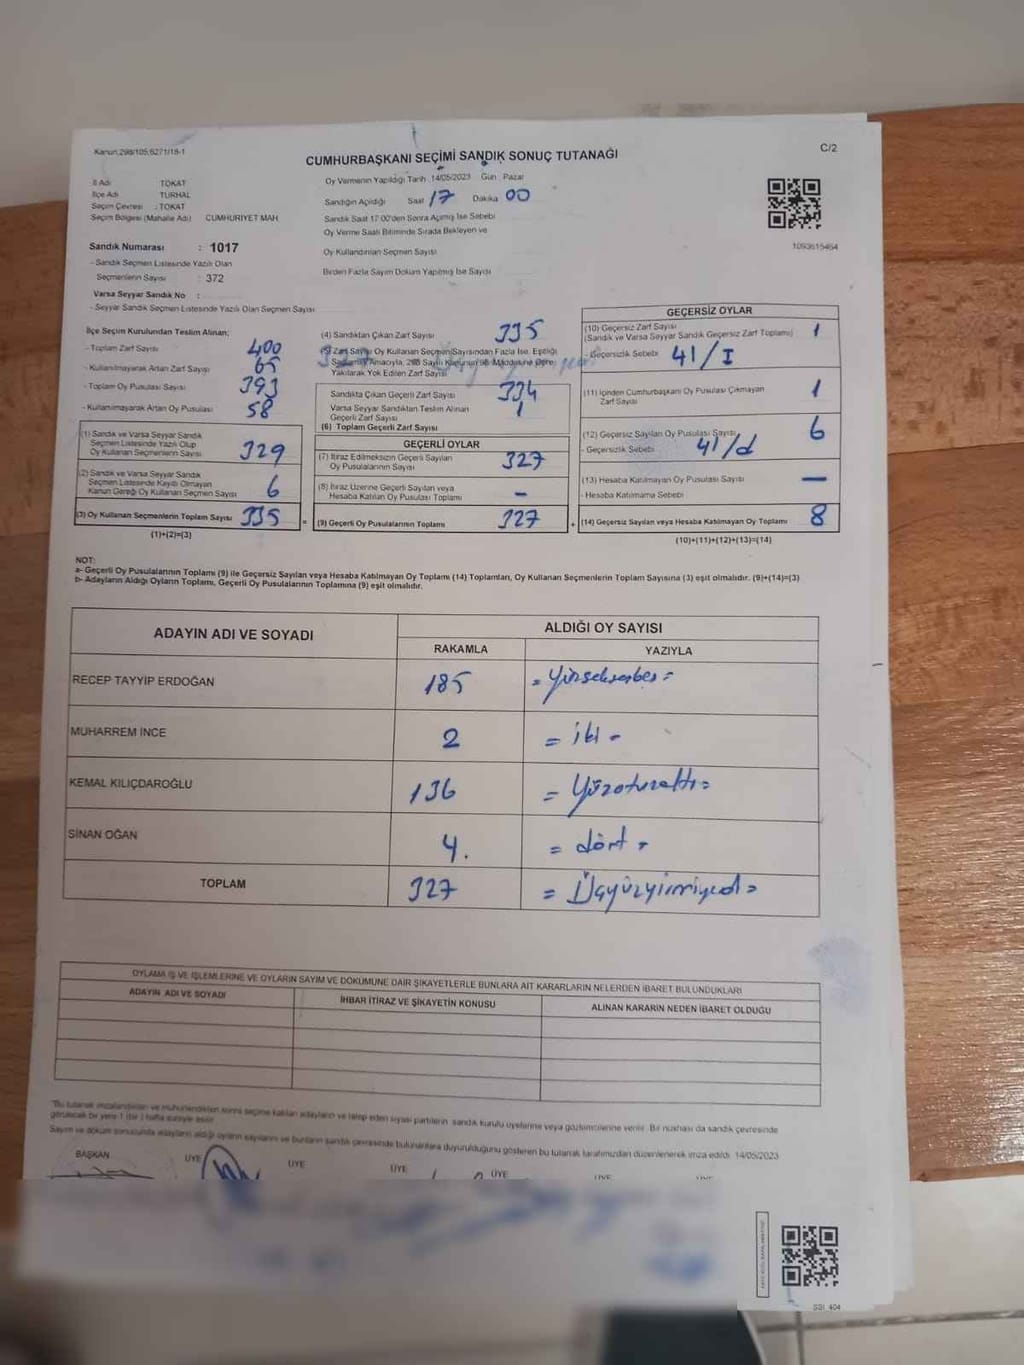 Kanun,298/105,6271/18-1
C/2
CUMHURBAŞKANI SEÇİMİ SANDIK SONUÇ TUTANAĞI
İl Adı TOKAT
İlçe Adı TURHAL
Seçim Çevresi : TOKAT
Seçim Bölgesi (Mahalle Adı) CUMHURİYET MAH
Oy Vermenin Yapıldığı Tarih 14/05/2023 Gün Pazar
Sandığın Açıldığı Saat 17 Dakika 00
Sandık Saat 17 00'den Sonra Açılmış İse Sebebi
Oy Verme Saati Bitiminde Sırada Bekleyen ve
Oy Kullandırılan Seçmen Sayısı
Birden Fazla Sayım Döküm Yapılmış İse Sayısı
1093615464
Sandık Numarası : 1017
- Sandık Seçmen Listesinde Yazılı Olan
Seçmenlerin Sayısı : 372
Varsa Seyyar Sandık No :
- Seyyar Sandık Seçmen Listesinde Yazılı Olan Seçmen Sayısı
İlçe Seçim Kurulundan Teslim Alınan;
- Toplam Zarf Sayısı 400
- Kullanılmayarak Artan Zarf Sayısı 65
- Toplam Oy Pusulası Sayısı 393
- Kullanılmayarak Artan Oy Pusulası 58
(1) Sandık ve Varsa Seyyar Sandık
Seçmen Listesinde Yazılı Olup
Oy Kullanan Seçmenlerin Sayısı 329
(2) Sandık ve Varsa Seyyar Sandık
Seçmen Listesinde Kaydı Olmayan
Kanun Gereği Oy Kullanan Seçmen Sayısı 6
(3) Oy Kullanan Seçmenlerin Toplam Sayısı 335
(1)+(2)=(3)
(4) Sandıktan Çıkan Zarf Sayısı 335
(5) Zarf Sayısı Oy Kullanan Seçmen Sayısından Fazla İse, Eşitliği
Sağlamak Amacıyla, 298 Sayılı Kanunun 98. Maddesine Göre
Yakılarak Yok Edilen Zarf Sayısı
Sandıkta Çıkan Geçerli Zarf Sayısı 334
Varsa Seyyar Sandıktan Teslim Alınan
Geçerli Zarf Sayısı 1
(6) Toplam Geçerli Zarf Sayısı
GEÇERLİ OYLAR
(7) İtiraz Edilmeksizin Geçerli Sayılan
Oy Pusulalarının Sayısı 327
(8) İtiraz Üzerine Geçerli Sayılan veya
Hesaba Katılan Oy Pusulası Toplamı -
= (9) Geçerli Oy Pusulalarının Toplamı 327
GEÇERSİZ OYLAR
(10) Geçersiz Zarf Sayısı
(Sandık ve Varsa Seyyar Sandık Geçersiz Zarf Toplamı) 1
- Geçersizlik Sebebi 41/I
(11) İçinden Cumhurbaşkanı Oy Pusulası Çıkmayan
Zarf Sayısı 1
(12) Geçersiz Sayılan Oy Pusulası Sayısı 6
- Geçersizlik Sebebi 41/d
(13) Hesaba Katılmayan Oy Pusulası Sayısı -
- Hesaba Katılmama Sebebi
+ (14) Geçersiz Sayılan veya Hesaba Katılmayan Oy Toplamı 8
(10)+(11)+(12)+(13)=(14)
NOT:
a- Geçerli Oy Pusulalarının Toplamı (9) ile Geçersiz Sayılan veya Hesaba Katılmayan Oy Toplamı (14) Toplamları, Oy Kullanan Seçmenlerin Toplam Sayısına (3) eşit olmalıdır. (9)+(14)=(3)
b- Adayların Aldığı Oyların Toplamı, Geçerli Oy Pusulalarının Toplamına (9) eşit olmalıdır.
ADAYIN ADI VE SOYADI
ALDIĞI OY SAYISI
RAKAMLA YAZIYLA
RECEP TAYYİP ERDOĞAN 185 = Yüzseksenbeş =
MUHARREM İNCE 2 = iki =
KEMAL KILIÇDAROĞLU 136 = Yüzotuzaltı =
SİNAN OĞAN 4. = dört =
TOPLAM 327 = Üçyüzyirmiyedi =
OYLAMA İŞ VE İŞLEMLERİNE VE OYLARIN SAYIM VE DÖKÜMÜNE DAİR ŞİKAYETLERLE BUNLARA AİT KARARLARIN NELERDEN İBARET BULUNDUKLARI
ADAYIN ADI VE SOYADI İHBAR İTİRAZ VE ŞİKAYETİN KONUSU ALINAN KARARIN NEDEN İBARET OLDUĞU
"Bu tutanak imzalandıktan ve mühürlendikten sonra seçime katılan adayların ve talep eden siyasi partilerin sandık kurulu üyelerine veya gözlemcilerine verilir. Bir nüshası da sandık çevresinde
görülecek bir yere 1 (bir) hafta süreyle asılır
Sayım ve döküm sonucunda adayların aldığı oyların sayılarını ve bunların sandık çevresinde bulunanlara duyurulduğunu gösteren bu tutanak tarafımızdan düzenlenerek imza edildi. 14/05/2023
BAŞKAN ÜYE ÜYE ÜYE ÜYE ÜYE ÜYE
SSI_404